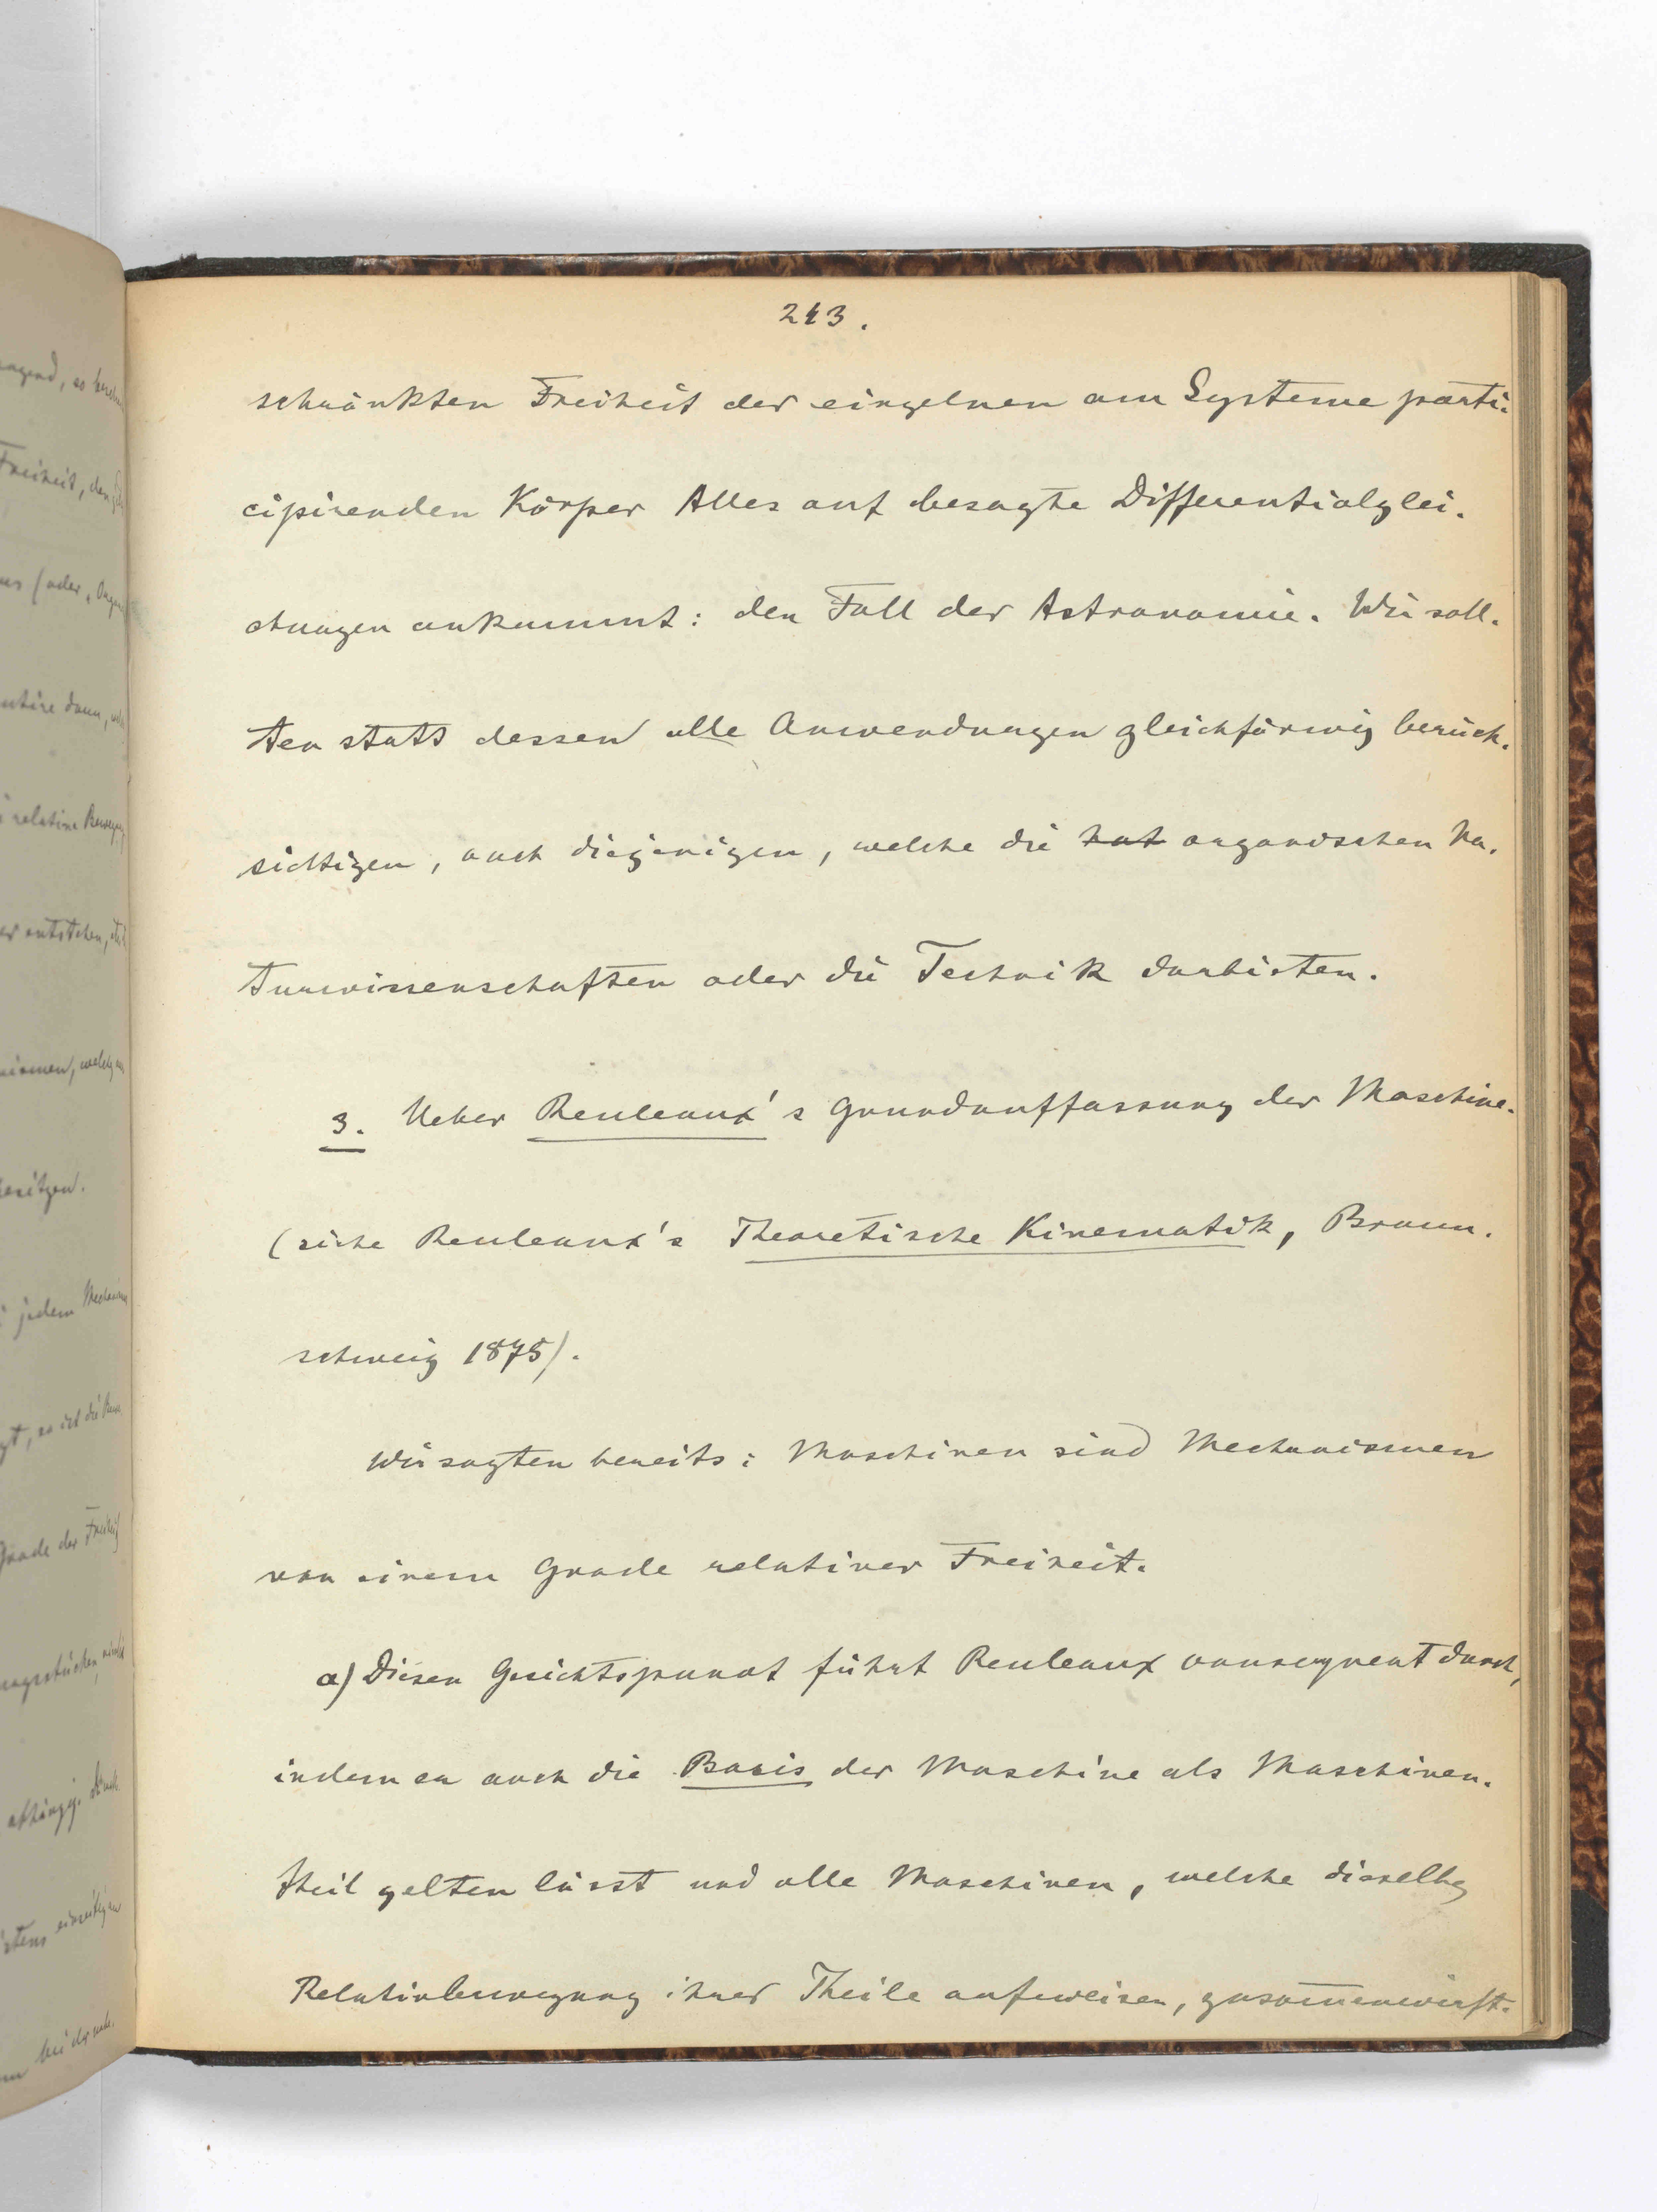 213.
schränkten Freiheit der einzelnen am Systeme parti-
cipirenden Körper Alles auf besagte Differentialglei-
chungen ankommt: den Fall der Astronomie. Wir soll-
ten statt dessen alle Anwendungen gleichförmig berück-
sichtigen, auch diejenigen, welche die nat organischen Na-
turwissenschaften oder die Technik darbieten.
3. Ueber Reuleaux's Grundauffassung der Maschine.
(siehe Reuleaux's Theoretische Kinematik, Braun-
schweig 1875).
Wir sagten bereits: Maschinen sind Mechanismen
von einem Grade relativer Freiheit.
a) Diesen Gesichtspunct führt Reuleaux consequent durch,
indem er auch die Basis der Maschine als Maschinen-
theil gelten lässt und alle Maschinen, welche dieselbe
Relativbewegung ihrer Theile aufweisen, zusam̅enwirft.
Freiheit, den
relative
entstehen,
besitzen.
jedem
Grade der Freiheit
einseitigen